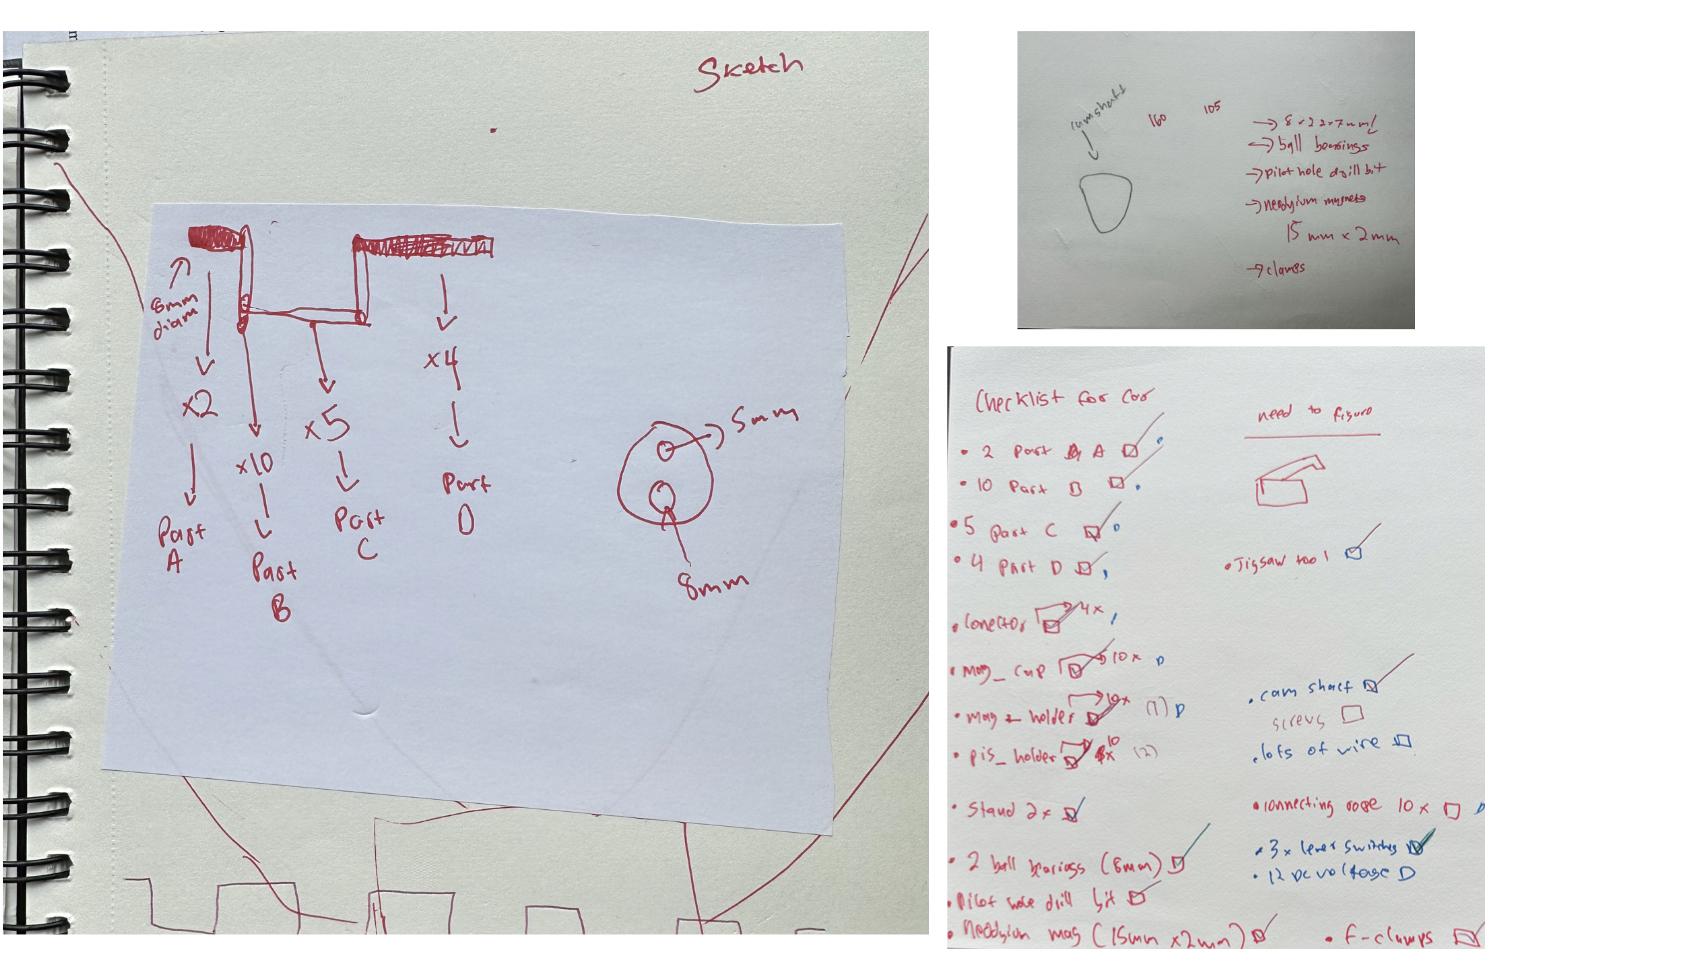 Sketch
8mm
diam
x2
x10
x5
x4
Part
A
Part
B
Part
C
Part
D
5mm
8mm
camshaft
160
105
→ 8x22x7mm
→ ball bearings
→ pilot hole drill bit
→
15mm x 2mm
→ clamps
Checklist for Car
• 2 Part A
• 10 Part B
• 5 Part C
• 4 Part D
• Conector 4x
• mag_cap 10x
• mag_holder 10x (1)
• pis_holder 10x (2)
• Stand 2x
• 2 ball (8mm)
• Pilot hole drill bit
• mag (15mm x2mm)
need to figure
• Jigsaw tool
• cam shaft
screws
• lots of wire
• connecting 10x
• 3x lever switches
• 12 DC voltage
• F-clamps